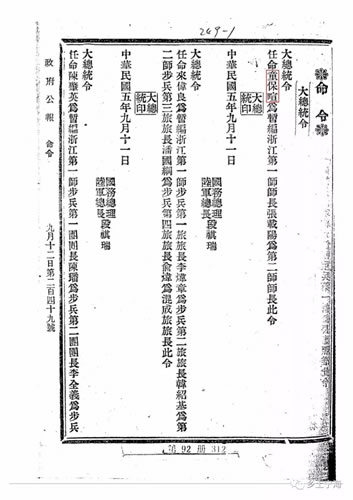 249-1
命令
大總統令
任命童保暄爲暫編浙江第一師師長張載陽爲第二師師長此令
大總統印
中華民國五年九月十一日
國務總理段祺瑞
陸軍總長
大總統令
任命來偉良爲暫編浙江第一師步兵第一旅旅長李煒章爲步兵第二旅旅長韓紹基爲第
二師步兵第三旅旅長潘國綱爲步兵第四旅旅長俞煒爲混成旅旅長此令
大總統印
中華民國五年九月十一日
國務總理段祺瑞
陸軍總長
大總統令
任命陳肇英爲暫編浙江第一師步兵第一團團長陳瓚爲步兵第二團團長李全義爲步兵
政府公報
命令
九月十二日第二百四十九號
第 92 册 312